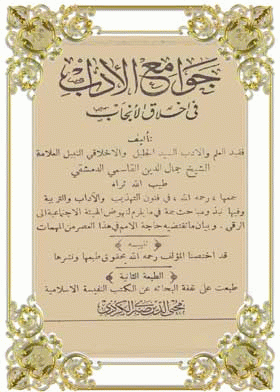 جوامع الآداب
في أخلاق الأنجاب
تأليف
فقيد العلم والادب السيد الجليل والاخلاقي النبيل العلامة
الشيخ جمال الدين القاسمي الدمشقي
طيب الله ثراه
جمعها ، رحمه الله ، في فنون التهذيب والآداب والتربية
وفيها نبذ ومباحث جمة في ما يلزم لنهوض الهيئة الاجتماعية الى
الرقي . وبيان ما تقتضيه حاجة الامم في هذا العصر من المهمات
تنبيه
قد اختصنا المؤلف رحمه الله بحقوق طبعها ونشرها
الطبعة الثانية
طبعت على نفقة البحاثة عن الكتب النفيسة الاسلامية
محيي الدين صبري الكردي